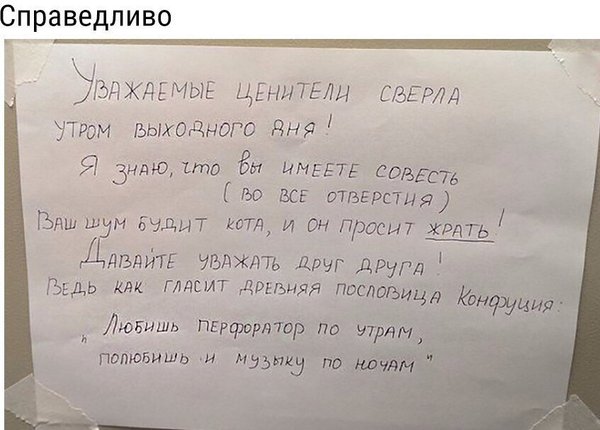 Справедливо
Уважаемые ценители сверла
утром выходного дня!
Я знаю, что вы имеете совесть
(во все отверстия)
Ваш шум будит кота, и он просит жрать!
Давайте уважать друг друга!
Ведь как гласит древняя пословица Конфуция:
"Любишь перфоратор по утрам,
полюбишь и музыку по ночам"